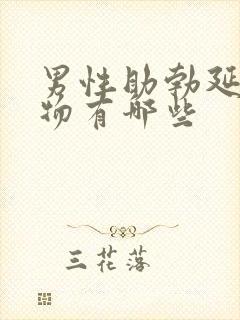 男性助勃延
物有哪些
三花落